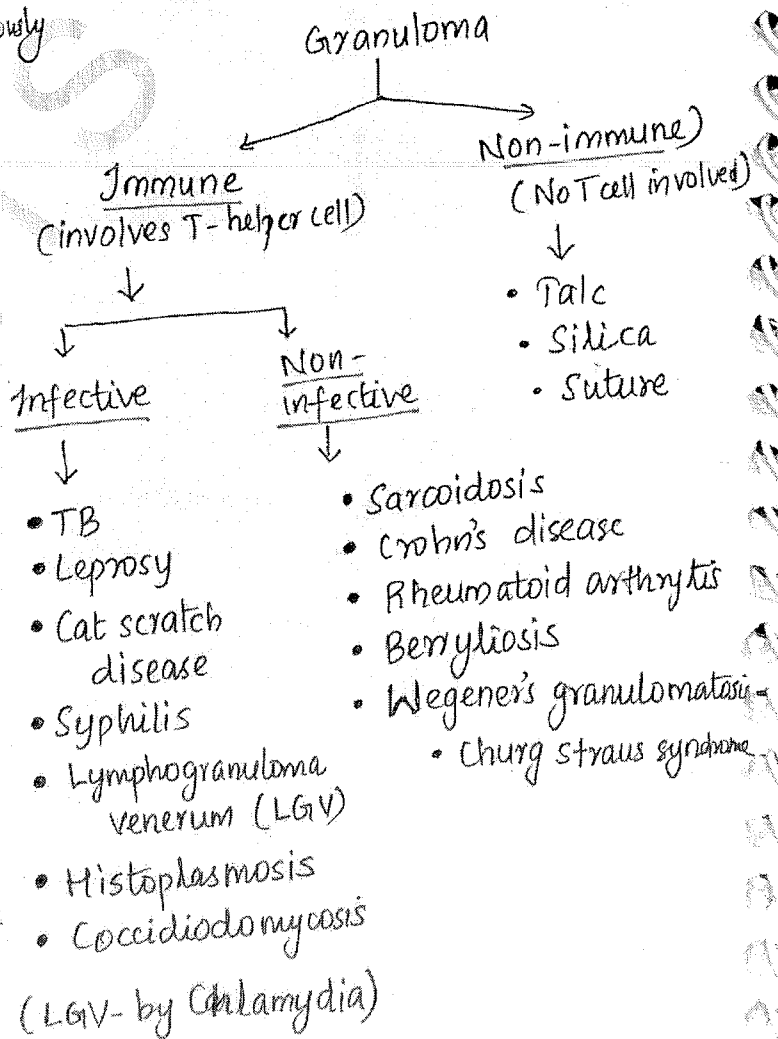 Granuloma
Immune
(involves T-helper cell)
Non-immune)
(No T cell involved)
• Talc
• Silica
• Suture
Infective
• TB
• Leprosy
• Cat scratch
disease
• Syphilis
• Lymphogranuloma
venerum (LGV)
• Histoplasmosis
• Coccidiodomycosis
(LGV- by Chlamydia)
Non-
infective
• Sarcoidosis
• Crohn's disease
• Rheumatoid arthrytis
• Berryliosis
• Wegener's granulomatosis
• Churg straus syndrome